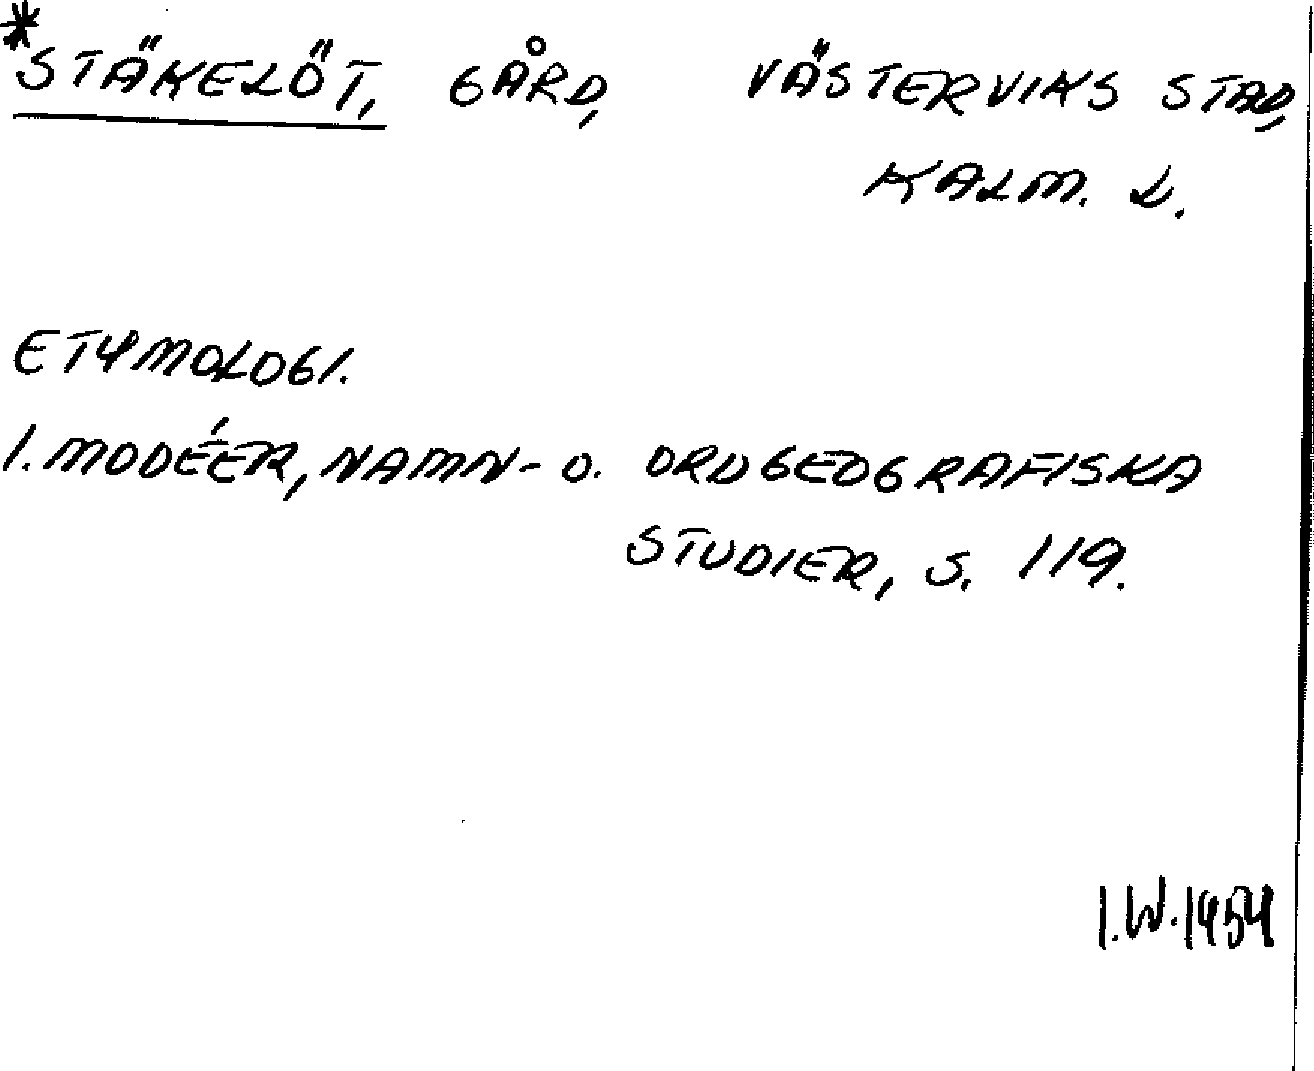 *STÄKELÖT, GÅRD, VÄSTERVIKS STAD,
KALM. L.
ETYMOLOGI.
I. MODÉER, NAMN- O. ORDGEOGRAFISKA
STUDIER, S. 119.
I.W. 1954